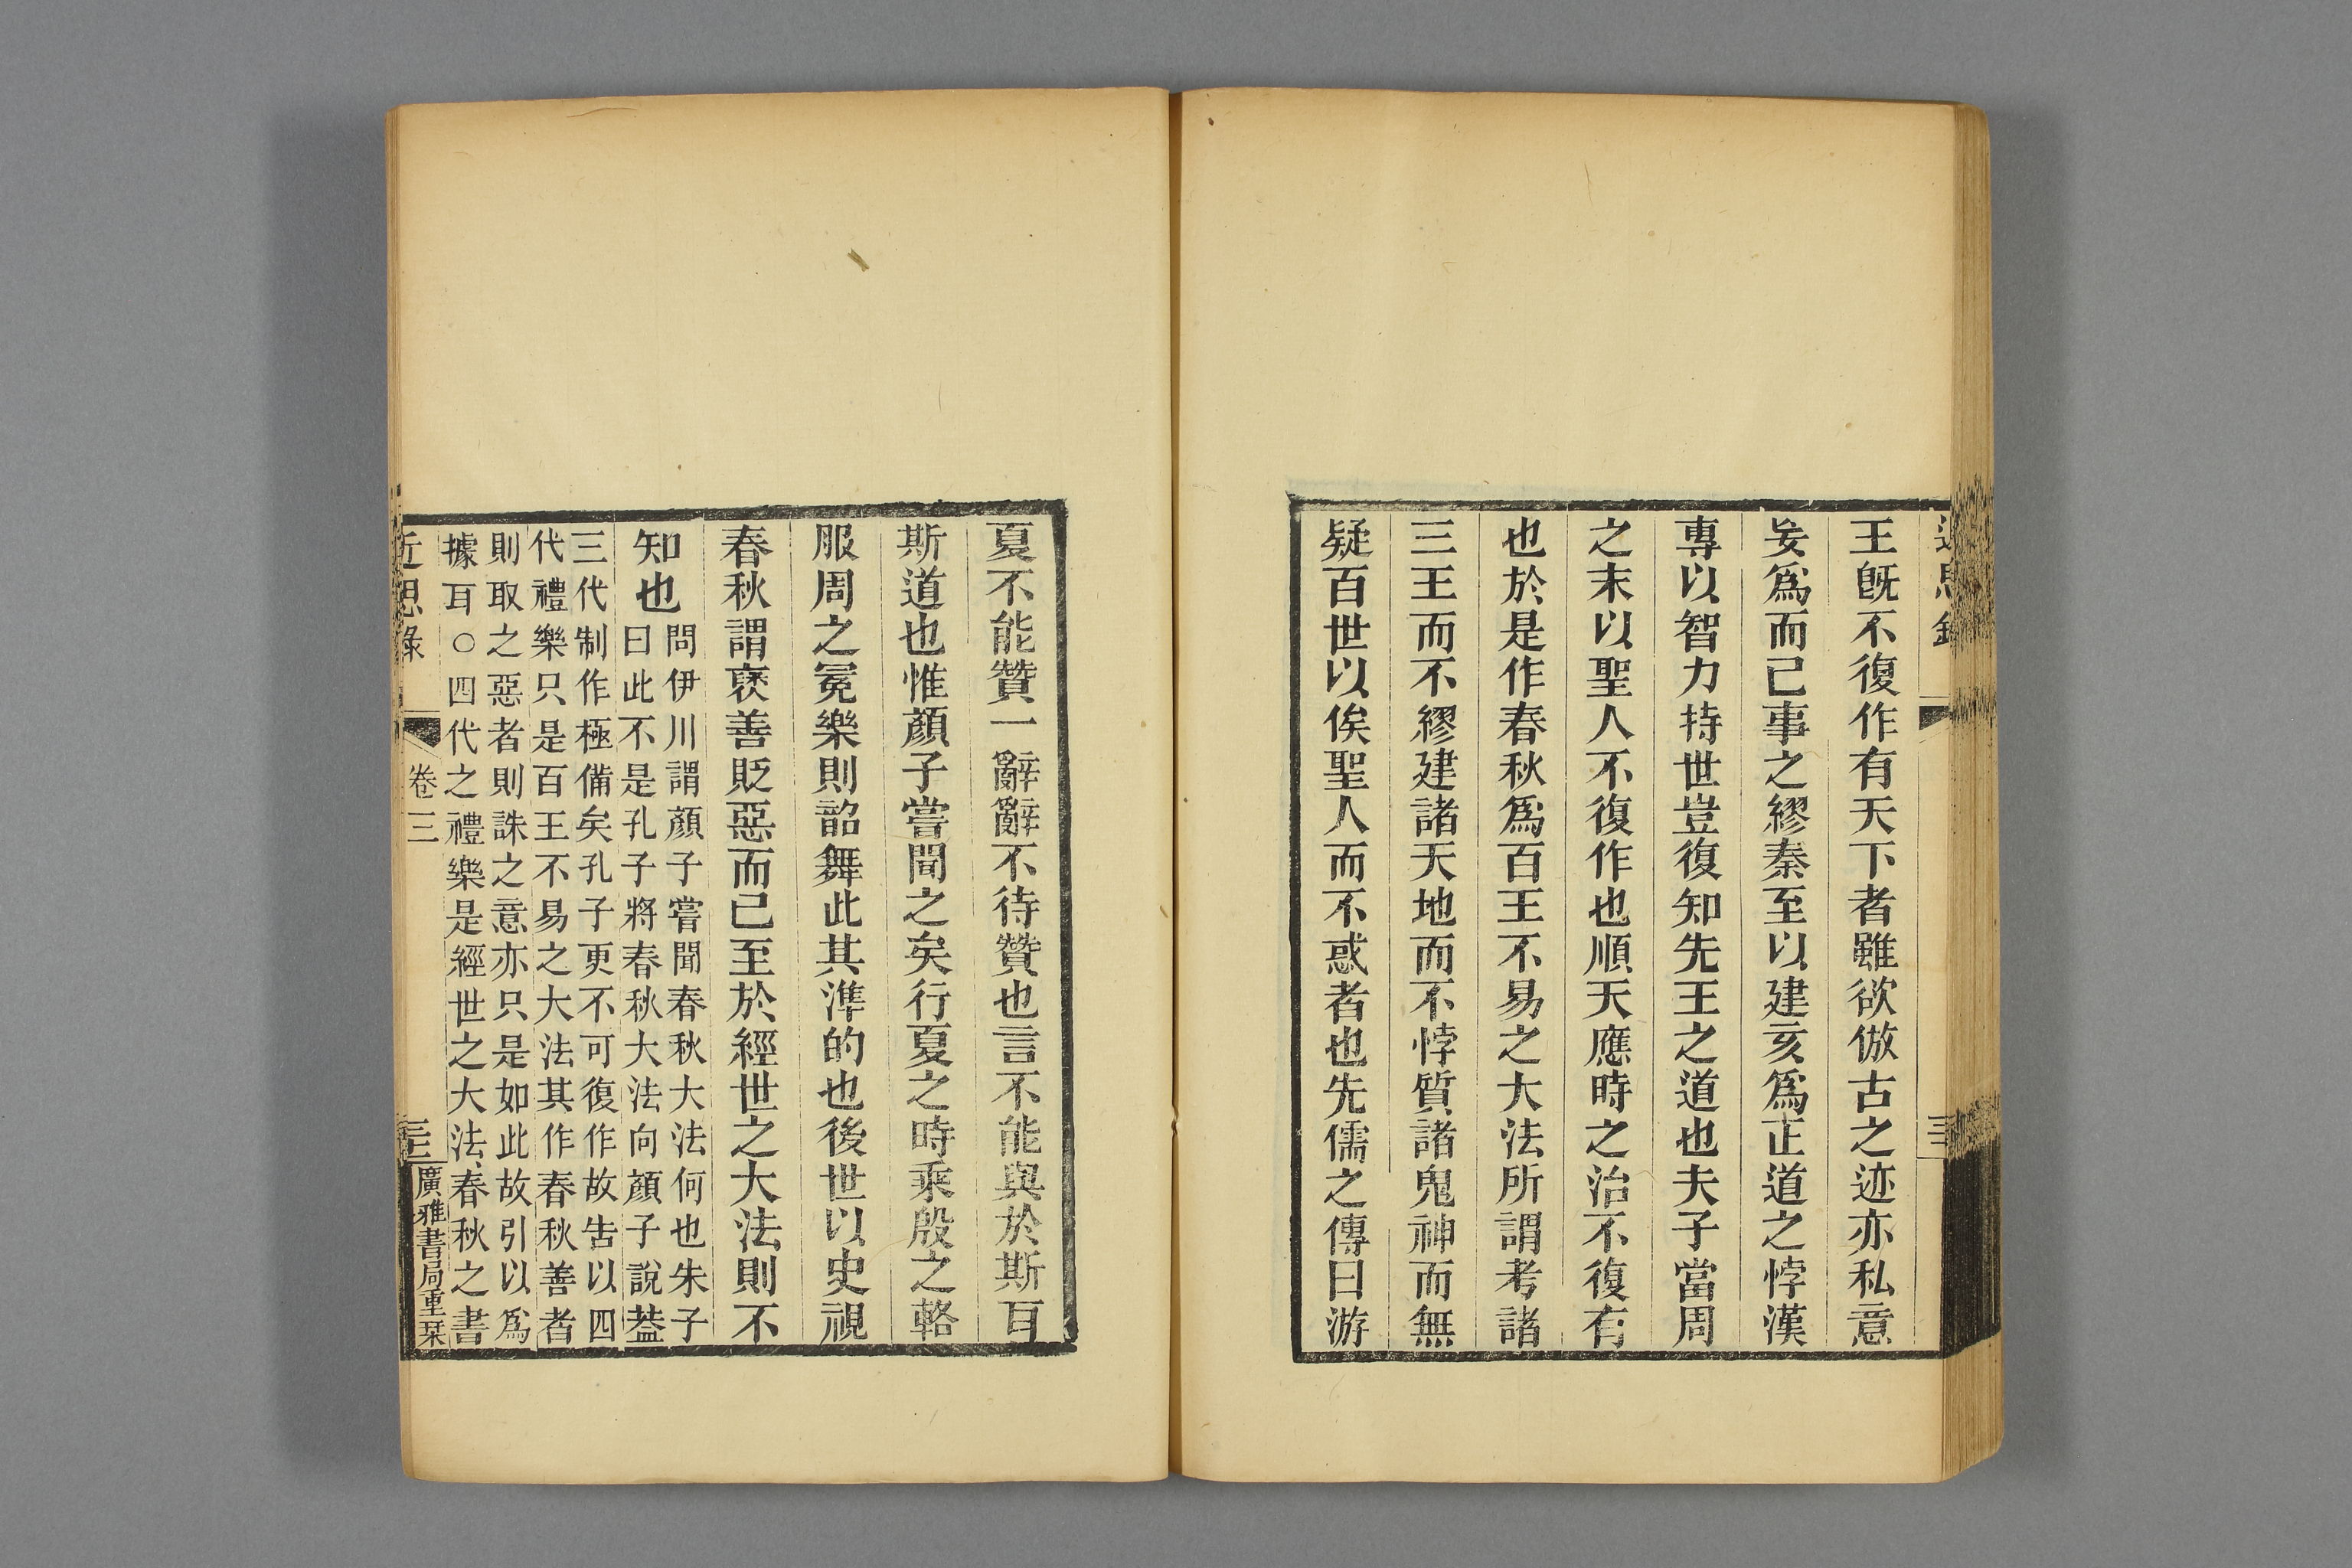 王旣不復作有天下者雖欲倣古之迹亦私意
妄爲而已事之繆秦至以建亥爲正道之悖漢
專以智力持世豈復知先王之道也夫子當周
之末以聖人不復作也順天應時之治不復有
也於是作春秋爲百王不易之大法所謂考諸
三王而不繆建諸天地而不悖質諸鬼神而無
疑百世以俟聖人而不惑者也先儒之傳曰游
夏不能贊一辭辭不待贊也言不能與於斯耳
斯道也惟顏子嘗聞之矣行夏之時乘殷之輅
服周之冕樂則韶舞此其準的也後世以史視
春秋謂襃善貶惡而已至於經世之大法則不
知也
問伊川謂顏子嘗聞春秋大法何也朱子
曰此不是孔子將春秋大法向顏子說葢
三代制作極備矣孔子更不可復作故告以四
代禮樂只是百王不易之大法其作春秋善者
則取之惡者則誅之意亦只是如此故引以爲
據耳○四代之禮樂是經世之大法春秋之書
近思錄
卷三
廣雅書局重栞